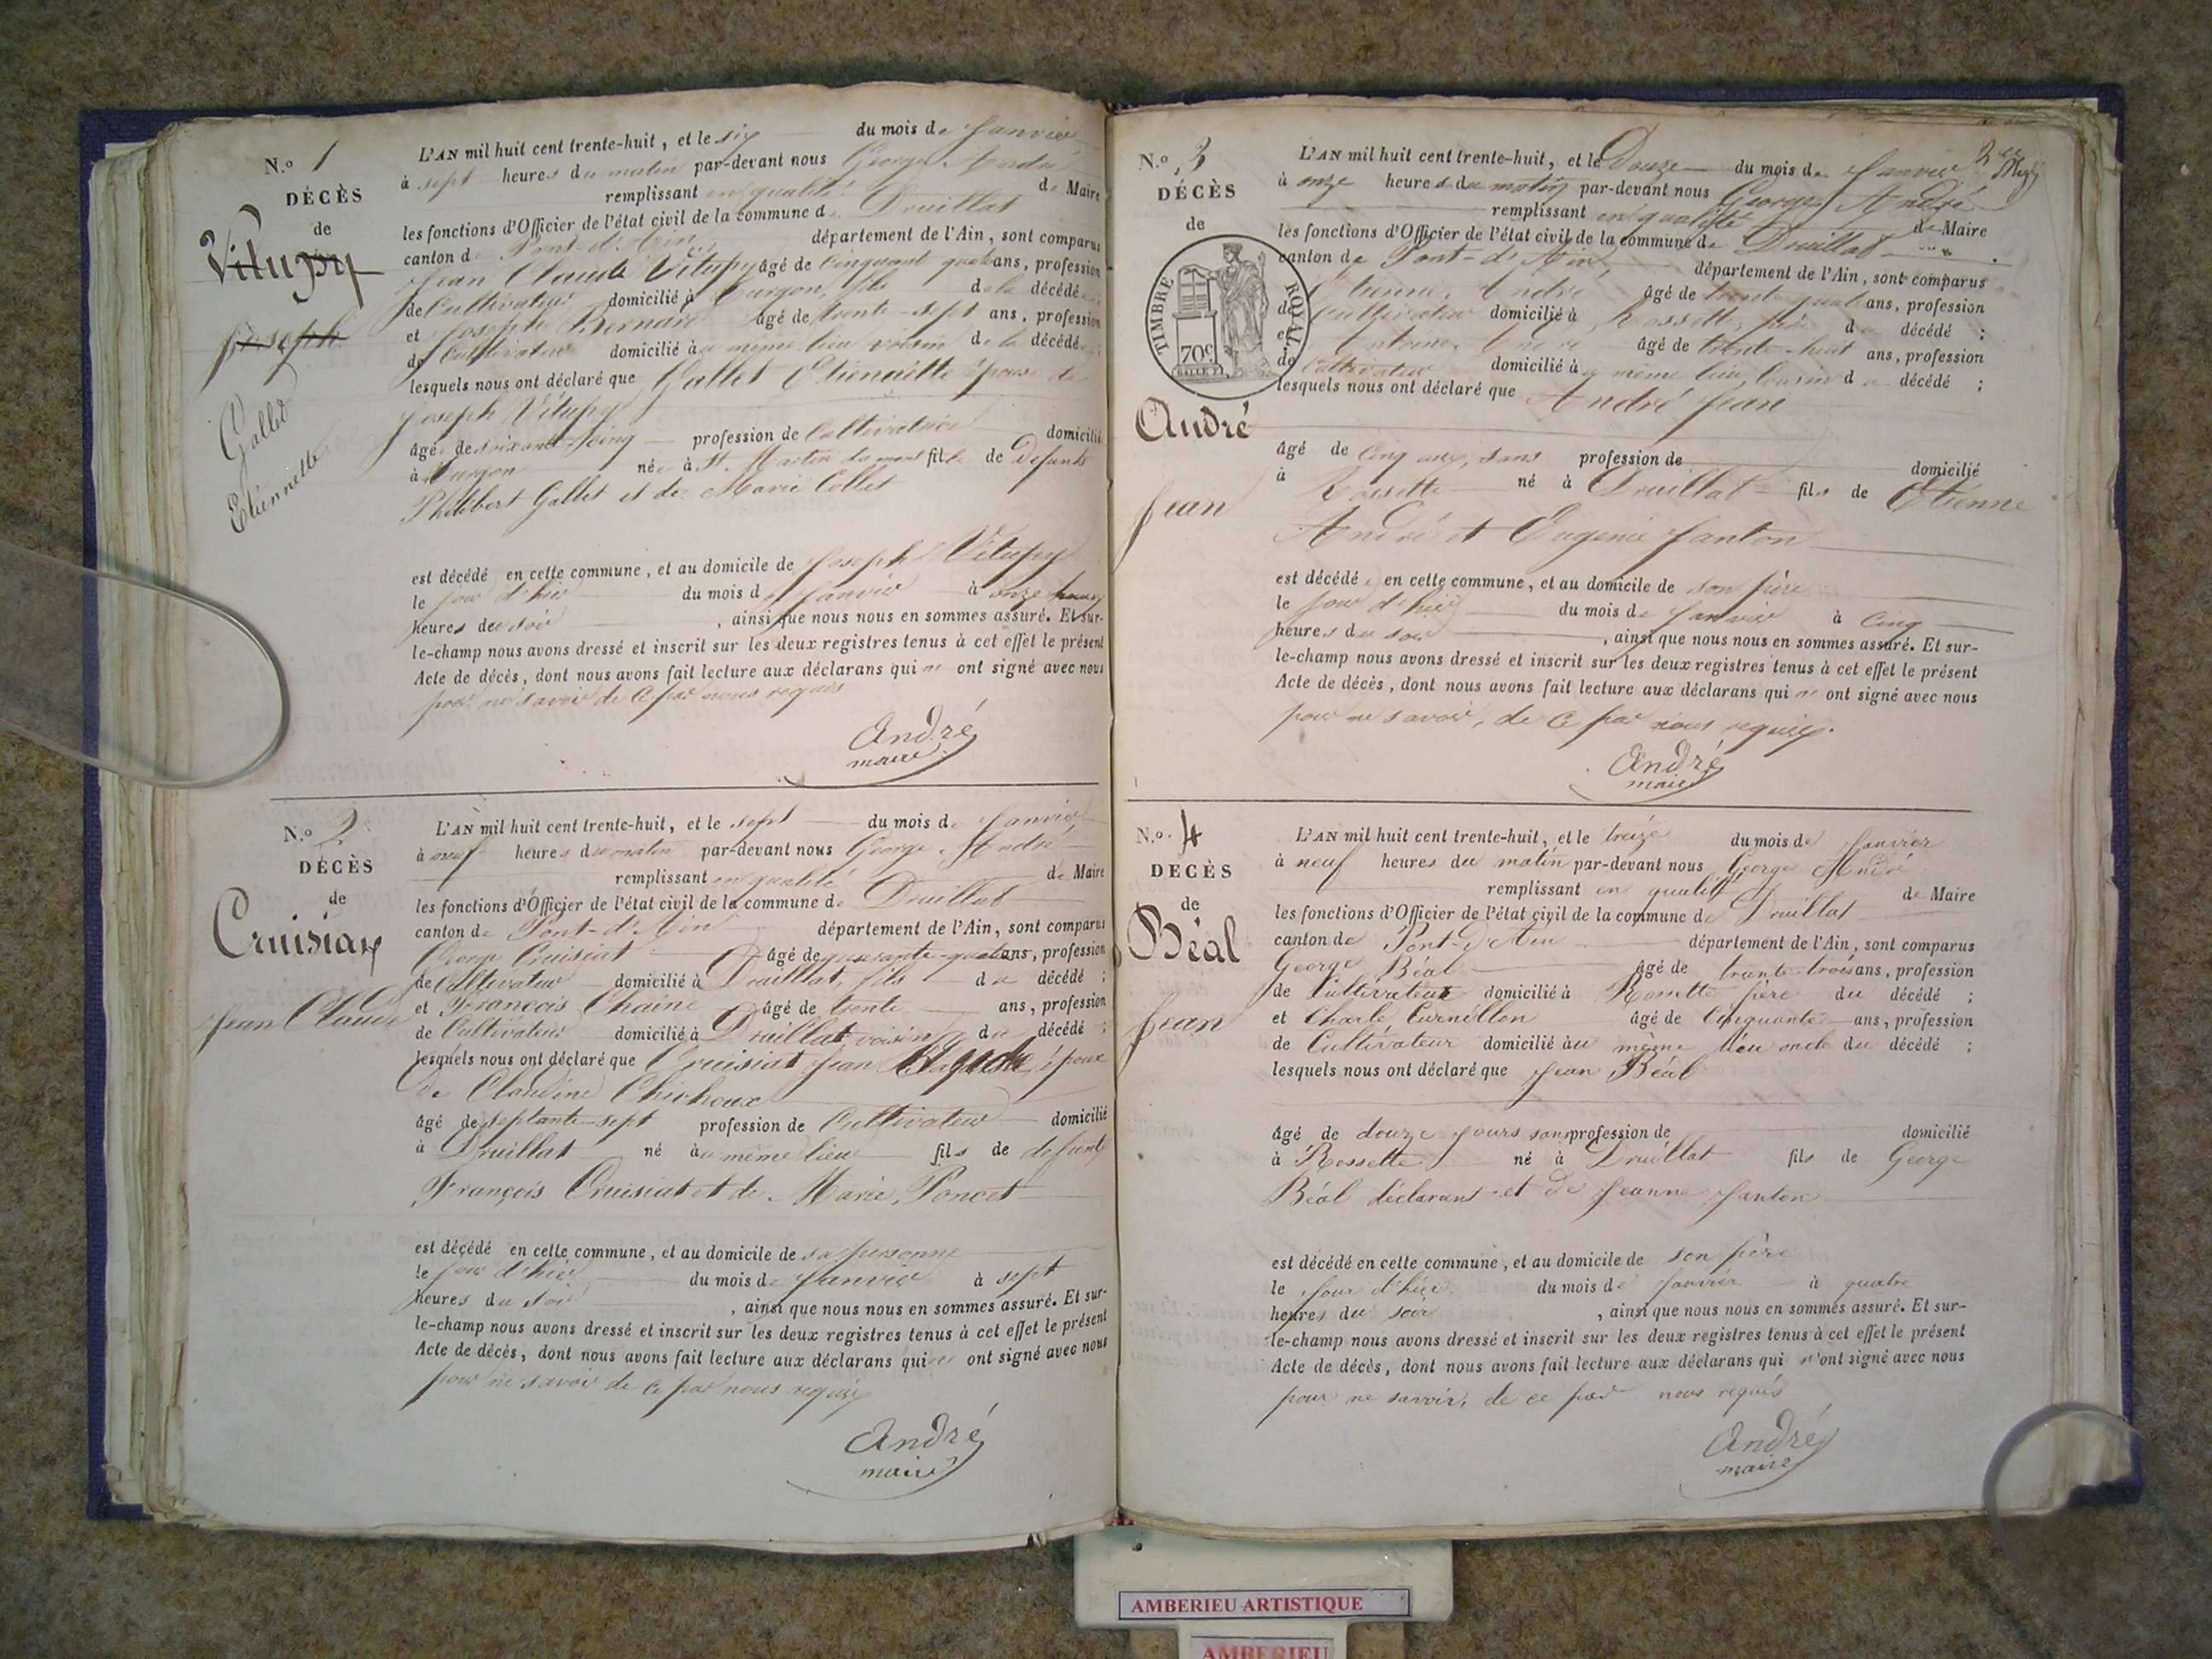 N.o 1
DÉCÈS
de
Vitupy
Joseph
Gallet
Etiennette
L'AN mil huit cent trente-huit, et le six du mois de Janvier
à sept heures du matin par-devant nous George André
remplissant en qualité de Maire
les fonctions d'Officier de l'état civil de la commune de Druillat
canton de Pont-d'Ain, département de l'Ain, sont comparus
Jean Claude Vitupy âgé de Cinquante quatre ans, profession
de Cultivateur domicilié à Turgon, fils de la décédée
et Joseph Bernard âgé de trente-sept ans, profession
de Cultivateur domicilié au même lieu voisin de la décédée
lesquels nous ont déclaré que Gallet Etiennette épouse de
Joseph Vitupy
âgée de soixante-cinq profession de Cultivatrice domicilié
à Turgon née à St Martin du mont fille de Defunts
Philibert Gallet et de Marie Collet
est décédé en cette commune, et au domicile de Joseph Vitupy
le jour d'hier du mois de Janvier à onze
heures du soir, ainsi que nous nous en sommes assuré. Et sur-
le-champ nous avons dressé et inscrit sur les deux registres tenus à cet effet le présent
Acte de décès, dont nous avons fait lecture aux déclarans qui n' ont signé avec nous
pour ne savoir de ce par nous requis
André
maire
N.o 2
DÉCÈS
de
Cruisiat
Jean Claude
L'AN mil huit cent trente-huit, et le sept du mois de Janvier
à neuf heures du matin par-devant nous George André
remplissant en qualité de Maire
les fonctions d'Officier de l'état civil de la commune de Druillat
canton de Pont-d'Ain département de l'Ain, sont comparus
George Cruisiat âgé de quarante-quatre ans, profession
de Cultivateur domicilié à Druillat, fils du décédé ;
et François Chaine âgé de trente ans, profession
de Cultivateur domicilié à Druillat voisin du décédé ;
lesquels nous ont déclaré que Cruisiat Jean époux
de Claudine Chicheux
âgé de septante-sept profession de Cultivateur domicilié
à Druillat né au même lieu fils de defunts
François Cruisiat et de Marie Poncet
est décédé en cette commune, et au domicile de sa personne
le jour d'hier du mois de Janvier à sept
heures du soir, ainsi que nous nous en sommes assuré. Et sur-
le-champ nous avons dressé et inscrit sur les deux registres tenus à cet effet le présent
Acte de décès, dont nous avons fait lecture aux déclarans qui n' ont signé avec nous
pour ne savoir de ce par nous requis
André
maire
N.o 3
DÉCÈS
de
TIMBRE ROYAL
70c
André
Jean
L'AN mil huit cent trente-huit, et le Douze du mois de Janvier
à onze heures du matin par-devant nous George André
remplissant en qualité de Maire
les fonctions d'Officier de l'état civil de la commune de Druillat
canton de Pont-d'Ain, département de l'Ain, sont comparus
Etienne André âgé de trente quatre ans, profession
de Cultivateur domicilié à Rossette, père du décédé ;
et Antoine André âgé de trente-huit ans, profession
de Cultivateur domicilié au même lieu, Cousin du décédé ;
lesquels nous ont déclaré que André Jean
âgé de Cinq ans, sans profession de domicilié
à Rossette né à Druillat fils de Etienne
André et Eugenie Janton
est décédé en cette commune, et au domicile de son père
le jour d'hier du mois de Janvier à Cinq
heures du soir, ainsi que nous nous en sommes assuré. Et sur-
le-champ nous avons dressé et inscrit sur les deux registres tenus à cet effet le présent
Acte de décès, dont nous avons fait lecture aux déclarans qui n' ont signé avec nous
pour ne savoir, de ce par nous requis.
André
maire
N.o 4
DÉCÈS
de
Béal
Jean
L'AN mil huit cent trente-huit, et le treize du mois de Janvier
à neuf heures du matin par-devant nous George André
remplissant en qualité de Maire
les fonctions d'Officier de l'état civil de la commune de Druillat
canton de Pont-d'Ain département de l'Ain, sont comparus
George Béal âgé de trante-trois ans, profession
de Cultivateur domicilié à Rossette père du décédé ;
et Charle Curnillon âgé de Cinquante ans, profession
de Cultivateur domicilié au même lieu oncle du décédé ;
lesquels nous ont déclaré que Jean Béal
âgé de douze jours sans profession de domicilié
à Rossette né à Druillat fils de George
Béal déclarant et de Jeanne Janton
est décédé en cette commune, et au domicile de son père
le jour d'hier du mois de Janvier à quatre
heures du soir, ainsi que nous nous en sommes assuré. Et sur-
le-champ nous avons dressé et inscrit sur les deux registres tenus à cet effet le présent
Acte de décès, dont nous avons fait lecture aux déclarans qui n'ont signé avec nous
pour ne savoir, de ce par nous requis
André
maire
AMBERIEU ARTISTIQUE
AMBERIEU